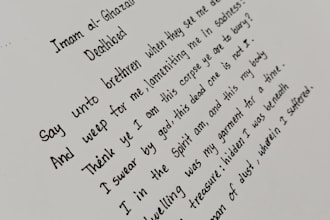 Imam al-Ghazali
Deathbed
Say unto brethren when they see me
And weep for me, lamenting me in sadness:
Think ye I am this corpse ye are to bury?
I swear by god. this dead one is not I.
I in the Spirit am, and this my body
dwelling was my garment for a time.
treasure: hidden I was beneath
man of dust, wherein I suffered.